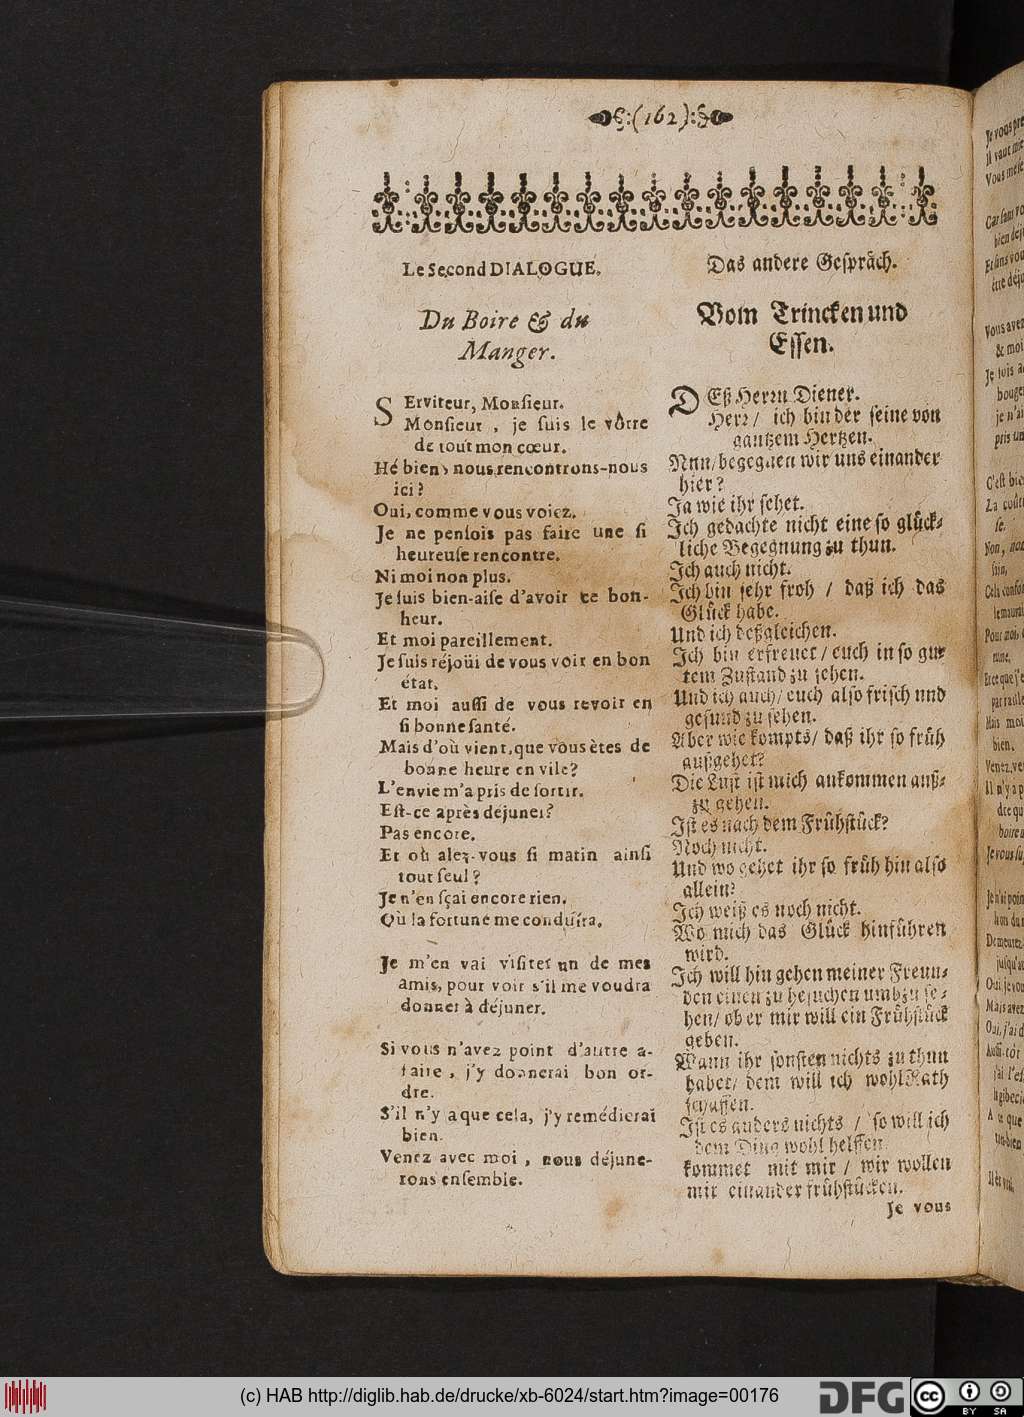 (162)
Le Second DIALOGUE.
Du Boire & du
Manger.
SErviteur, Monsieur.
Monsieur, je suis le vôtre
de tout mon cœur.
Hé bien, nous rencontrons-nous
ici?
Oui, comme vous voiez.
Je ne pensois pas faire une si
heureuse rencontre.
Ni moi non plus.
Je suis bien-aise d'avoir ce bon-
heur.
Et moi pareillement.
Je suis réjoüi de vous voir en bon
état.
Et moi aussi de vous revoir en
si bonne santé.
Mais d'où vient, que vous ètes de
bonne heure en vile?
L'envie m'a pris de sortir.
Est-ce après déjuner?
Pas encore.
Et où alez-vous si matin ainsi
tout seul?
Je n'en sçai encore rien.
Où la fortune me conduira.
Je m'en vai visiter un de mes
amis, pour voir s'il me voudra
donner à déjuner.
Si vous n'avez point d'autre a-
faire, j'y donnerai bon or-
dre.
S'il n'y a que cela, j'y remédierai
bien.
Venez avec moi, nous déjune-
rons ensemble.
Das andere Gespräch.
Vom Trincken und
Essen.
DEß Herrn Diener.
Herr/ ich bin der seine von
gantzem Hertzen.
Nun/ begegnen wir uns einander
hier?
Ja wie ihr sehet.
Ich gedachte nicht eine so glück-
liche Begegnung zu thun.
Ich auch nicht.
Ich bin sehr froh / daß ich das
Glück habe.
Und ich deßgleichen.
Ich bin erfreuet / euch in so gu-
tem Zustand zu sehen.
Und ich auch/ euch also frisch und
gesund zu sehen.
Aber wie kompts/ daß ihr so früh
außgehet?
Die Lust ist mich ankommen auß-
zu gehen.
Ist es nach dem Frühstück?
Noch nicht.
Und wo gehet ihr so früh hin also
allein?
Ich weiß es noch nicht.
Wo mich das Glück hinführen
wird.
Ich will hin gehen meiner Freun-
den einen zu besuchen umb zu se-
hen/ ob er mir will ein Frühstück
geben.
Wann ihr sonsten nichts zu thun
habet/ dem will ich wohl Rath
schaffen.
Ist es anders nichts / so will ich
dem Ding wohl helffen.
kommet mit mir / wir wollen
mit einander frühstücken.
Je vous
(c) HAB http://diglib.hab.de/drucke/xb-6024/start.htm?image=00176
DFG
cc
BY SA